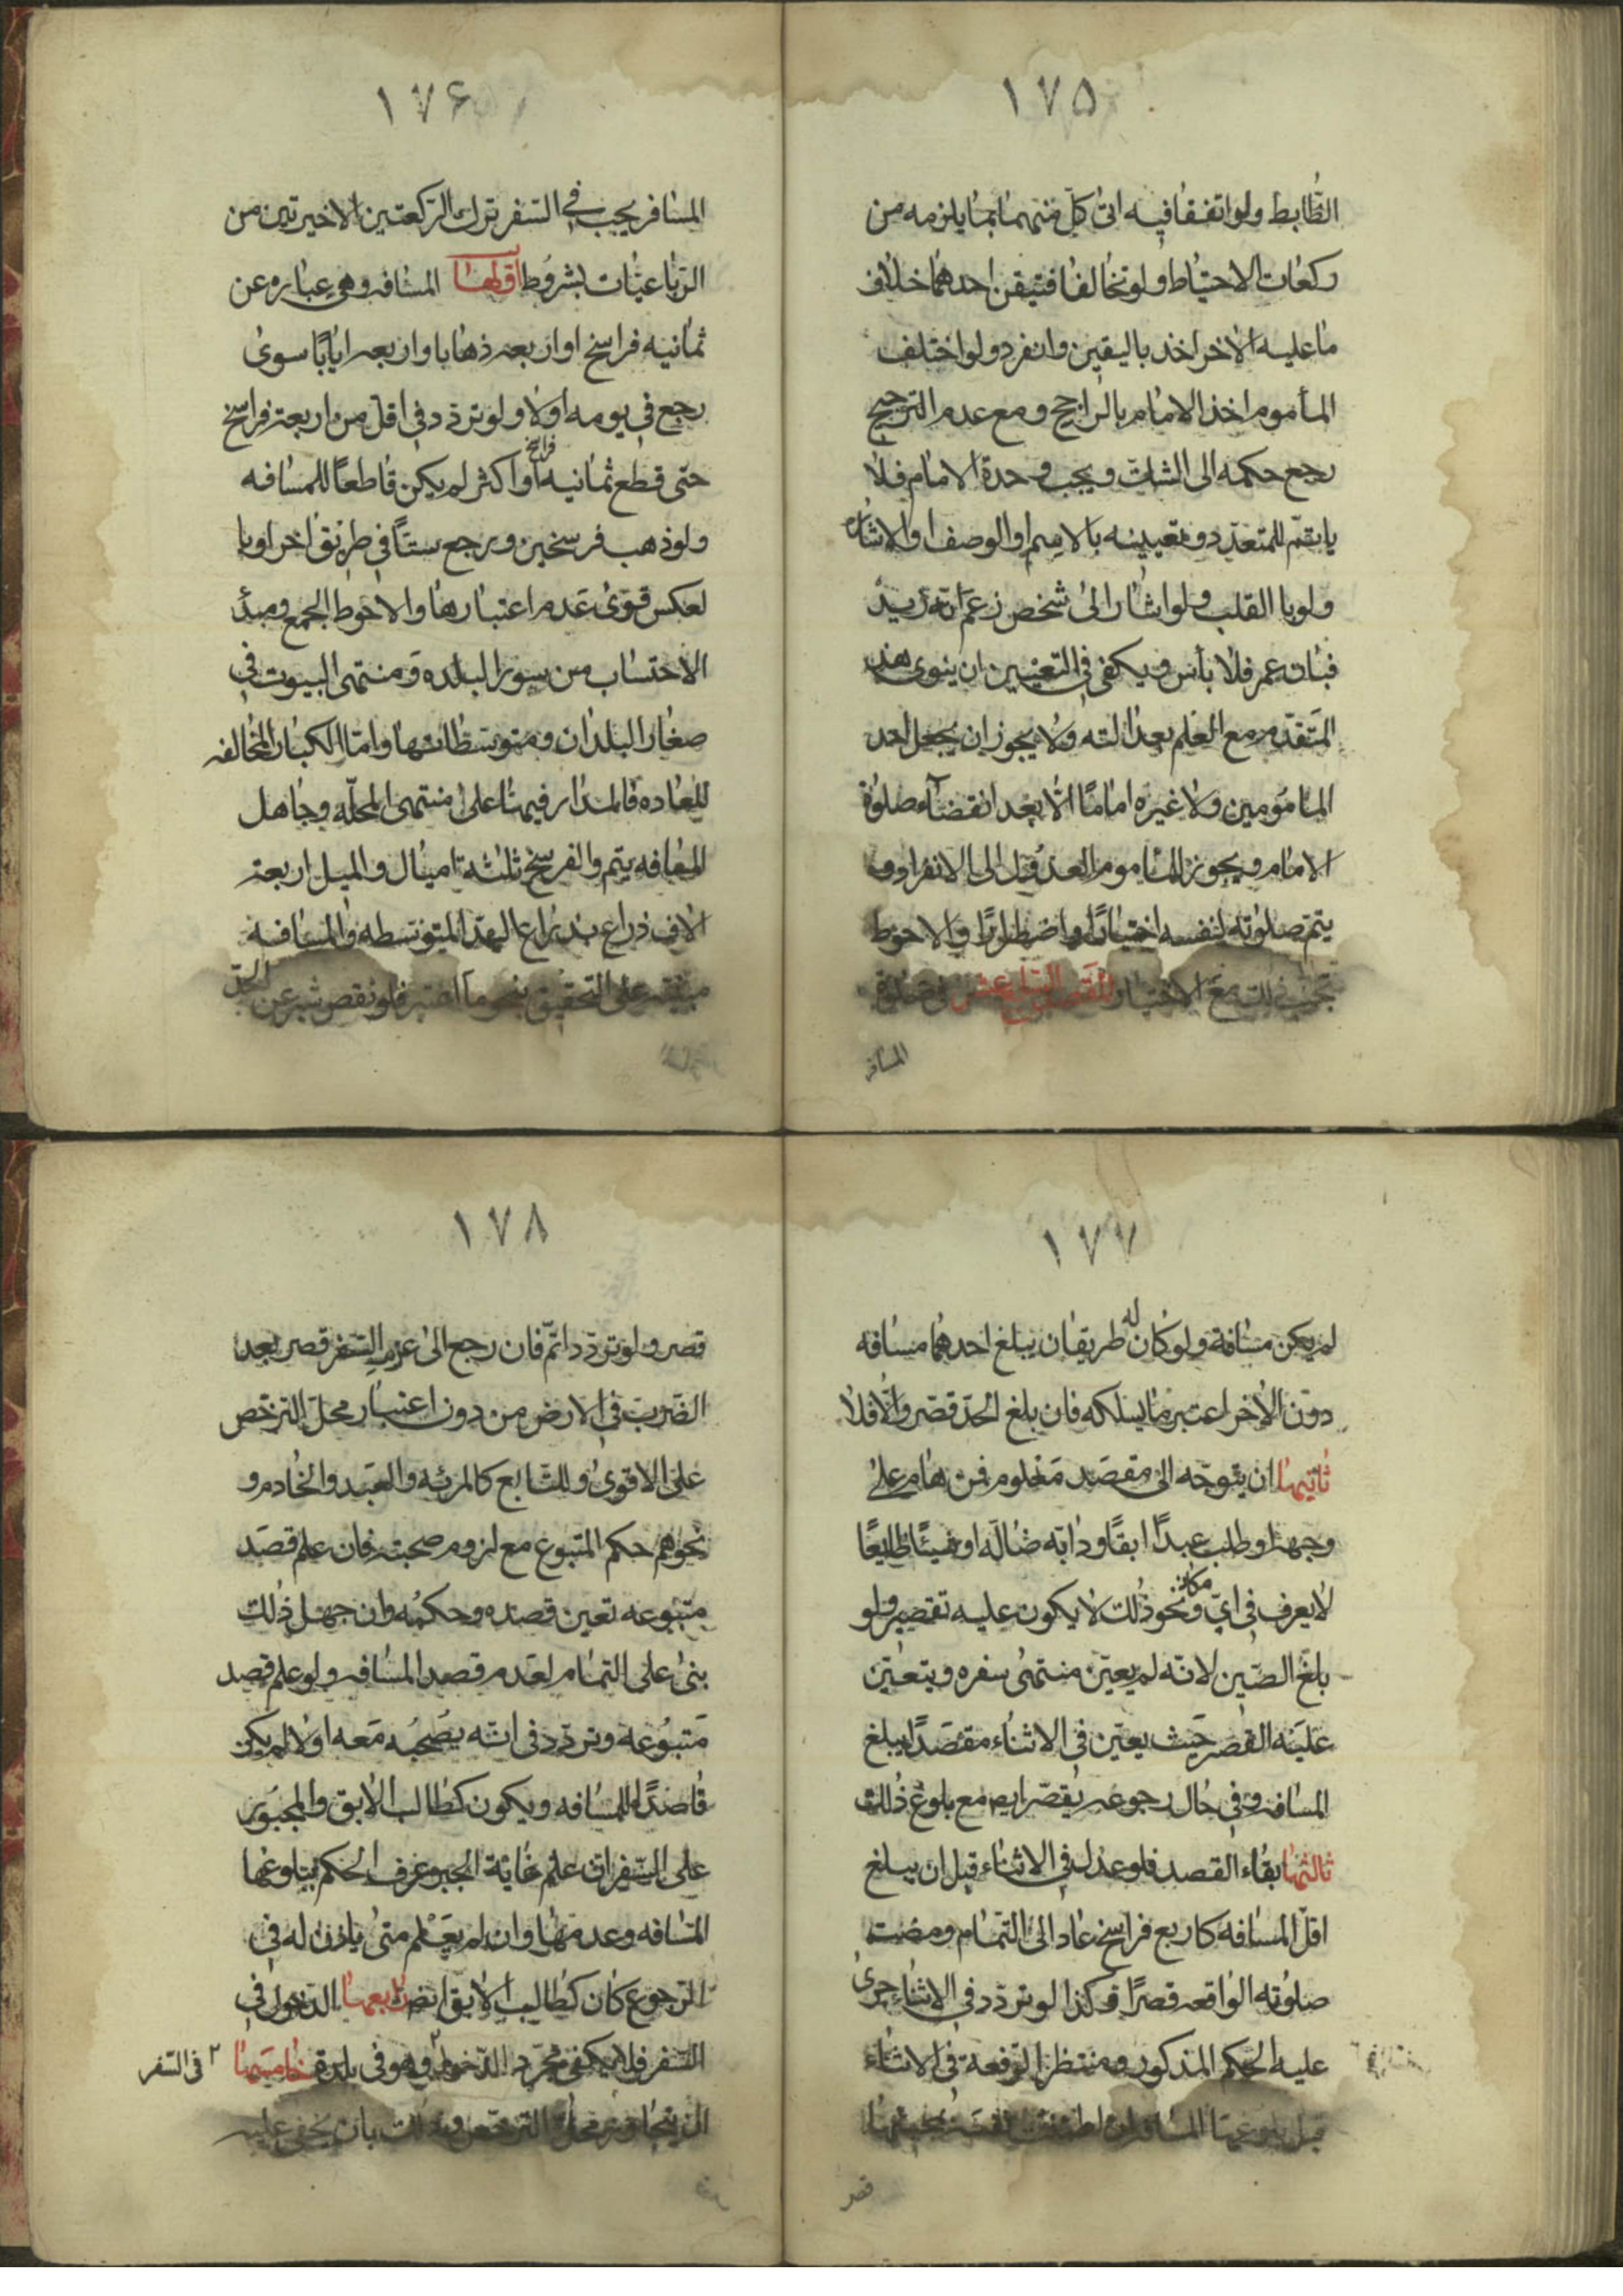 ١٧٥
الظابط ولو اتفقا فيه اتى كل منهما بما يلزمه من
ركعات الاحتياط ولو تخالفا فتيقن احدهما خلاف
ما عليه الاخر اخذ باليقين وانفرد ولو اختلف
المأموم اخذ الامام بالراجح ومع عدم الترجيح
رجع حكمه الى الشك ويجب وحدة الامام فلا
يأتم للمتعدد وتعيينه بالاسم او الوصف او الاشاره
ولو با القلب ولو اشار الى شخص زعم انه زيد
فبان عمر فلا بأس ويكفى فى التعيين ان ينوى هذا
المتقدم مع العلم بعدالته ولا يجوز ان يجعل احد
المامومين ولا غيره امامًا الا بعد انقضآء صلوة
الامام ويجوز للماموم العدول الى الانفراد و
يتم صلوته لنفسه اختيارًا واضطرارًا والاحوط
تجنب ذلك مع الاختيار المقصد السابع عشر فى صلوة
المسافر
١٧۶
المسافر يجب في السفر ترك الركعتين الاخيرتين من
الرباعيات بشروط اولها المسافه وهى عباره عن
ثمانيه فراسخ او اربعه ذهابا واربعه ايابًا سوى
رجع فى يومه اولا ولو تردد فى اقل من اربعة فراسخ
حتى قطع ثمانيه فراسخ او اكثر لم يكن قاطعًا للمسافه
ولو ذهب فرسخين ورجع ستًا فى طريق اخر او با
لعكس قوى عدم اعتبارها والاحوط الجمع ومبدأ
الاحتساب من سور البلده ومنتهى البيوت فى
صغار البلدان ومتوسطاتها واما الكبار المخالفه
للعاده فالمدار فيها على منتهى المحلّه وجاهل
المسافه يتم والفرسخ ثلثة اميال والميل اربعة
الاف ذراع بذراع اليد المتوسطه والمسافه
مبنيه على التحقيق فلو نقص شبر عن الحد
١٧٧
لم يكن مسافة ولو كان له طريقان يبلغ احدهما مسافه
دون الاخر اعتبر ما يسلكه فان بلغ الحد قصر والّا فلا
ثانيها ان يتوجه الى مقصد معلوم فمن هام على
وجهه او طلب عبدًا ابقًا او دابه ضاله او شيئًا ظايعًا
لا يعرف فى اىّ مكان ونحو ذلك لا يكون عليه تقصير ولو
بلغ الصّين لانه لم يعين منتهى سفره ويتعين
عليه القصر حيث يعين فى الاثناء مقصدًا يبلغ
المسافه وفى حال رجوعه يقصر ايض مع بلوغ ذلك
ثالثها بقاء القصد فلو عدل فى الاثناء قبل ان يبلغ
اقل المسافه كاربع فراسخ عاد الى التمام ومضت
صلوته الواقعه قصرًا وكذا لو تردد فى الاثناء جرى
عليه الحكم المذكور ومنتظر الرفقة فى الاثناء
قبل بلوغها المسافه ان اطمئن
قصر
١٧٨
قصر ولو تردد اتمّ فان رجع الى عزم السفر قصر بعد
الضرب فى الارض من دون اعتبار محل الترخص
على الاقوى وللتابع كالمرئه والعبد والخادم و
نحوهم حكم المتبوع مع لزوم صحبته فان علم قصد
متبوعه تعين قصده وحكمه وان جهل ذلك
بنى على التمام لعدم قصد المسافه ولو علم قصد
متبوعه وتردد فى انه يصحبه معه اولا لم يكن
قاصدًا للمسافه ويكون كطالب الابق والمجبور
على السفر ان علم غاية الجبر عرف الحكم ببلوغها
المسافه وعدمها وان لم يعلم متى ياذن له فى
الرجوع كان كطالب الابق ايض رابعها الدخول فى
السفر فلا يكفى مجرد الدخول وهو فى بلدة خامسها
٢ فى السفر
ان يتجاوز محل الترخص وذلك بان يخفى عليه